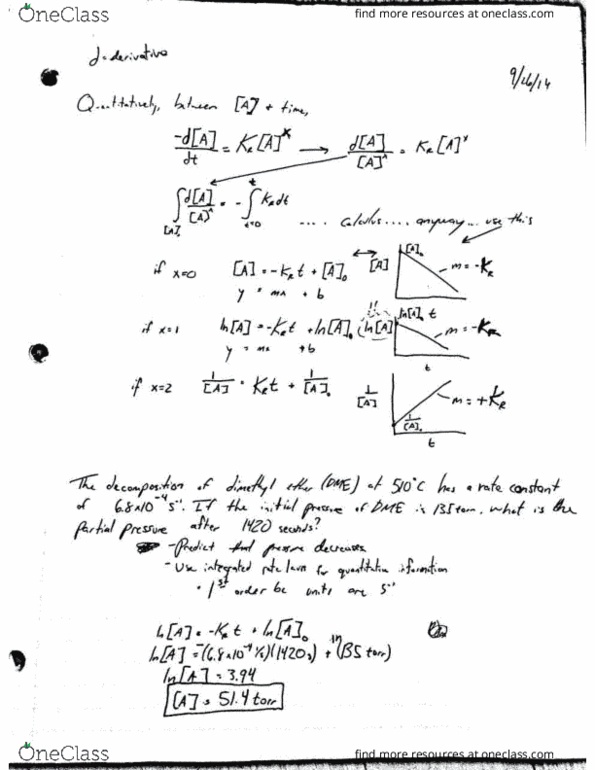 OneClass
find more resources at oneclass.com
d=derivative
9/26/14
Quantitatively, between [A] + time,
-d[A]/dt = K_R[A]^x → d[A]/[A]^x = K_R[A]^x
∫_{[A]₀} d[A]/[A]^x = -∫_{t=0}^{t} K_R dt .... calculus .... anyway... use this
if x=0 [A] = -K_R t + [A]₀ ↔ [A] [A]₀ m = -K_R
y = mx + b t
if x=1 ln[A] = -K_R t + ln[A]₀ ln[A] ln[A]₀ m = -K_R
y = mx + b t
if x=2 1/[A] = K_R t + 1/[A]₀ 1/[A] 1/[A]₀ m = +K_R
t
The decomposition of dimethyl ether (DME) at 510°C has a rate constant
of 6.8x10⁻⁴ s⁻¹. If the initial pressure of DME is 135 torr, what is the
partial pressure after 1420 seconds?
- Predict that pressure decreases
- Use integrated rate laws for quantitative information
• 1st order bc units are s⁻¹
ln[A] = -K_R t + ln[A]₀
ln[A] = -(6.8x10⁻⁴ 1/s)(1420s) + ln(135 torr)
ln[A] = 3.94
[A] = 51.4 torr
OneClass
find more resources at oneclass.com